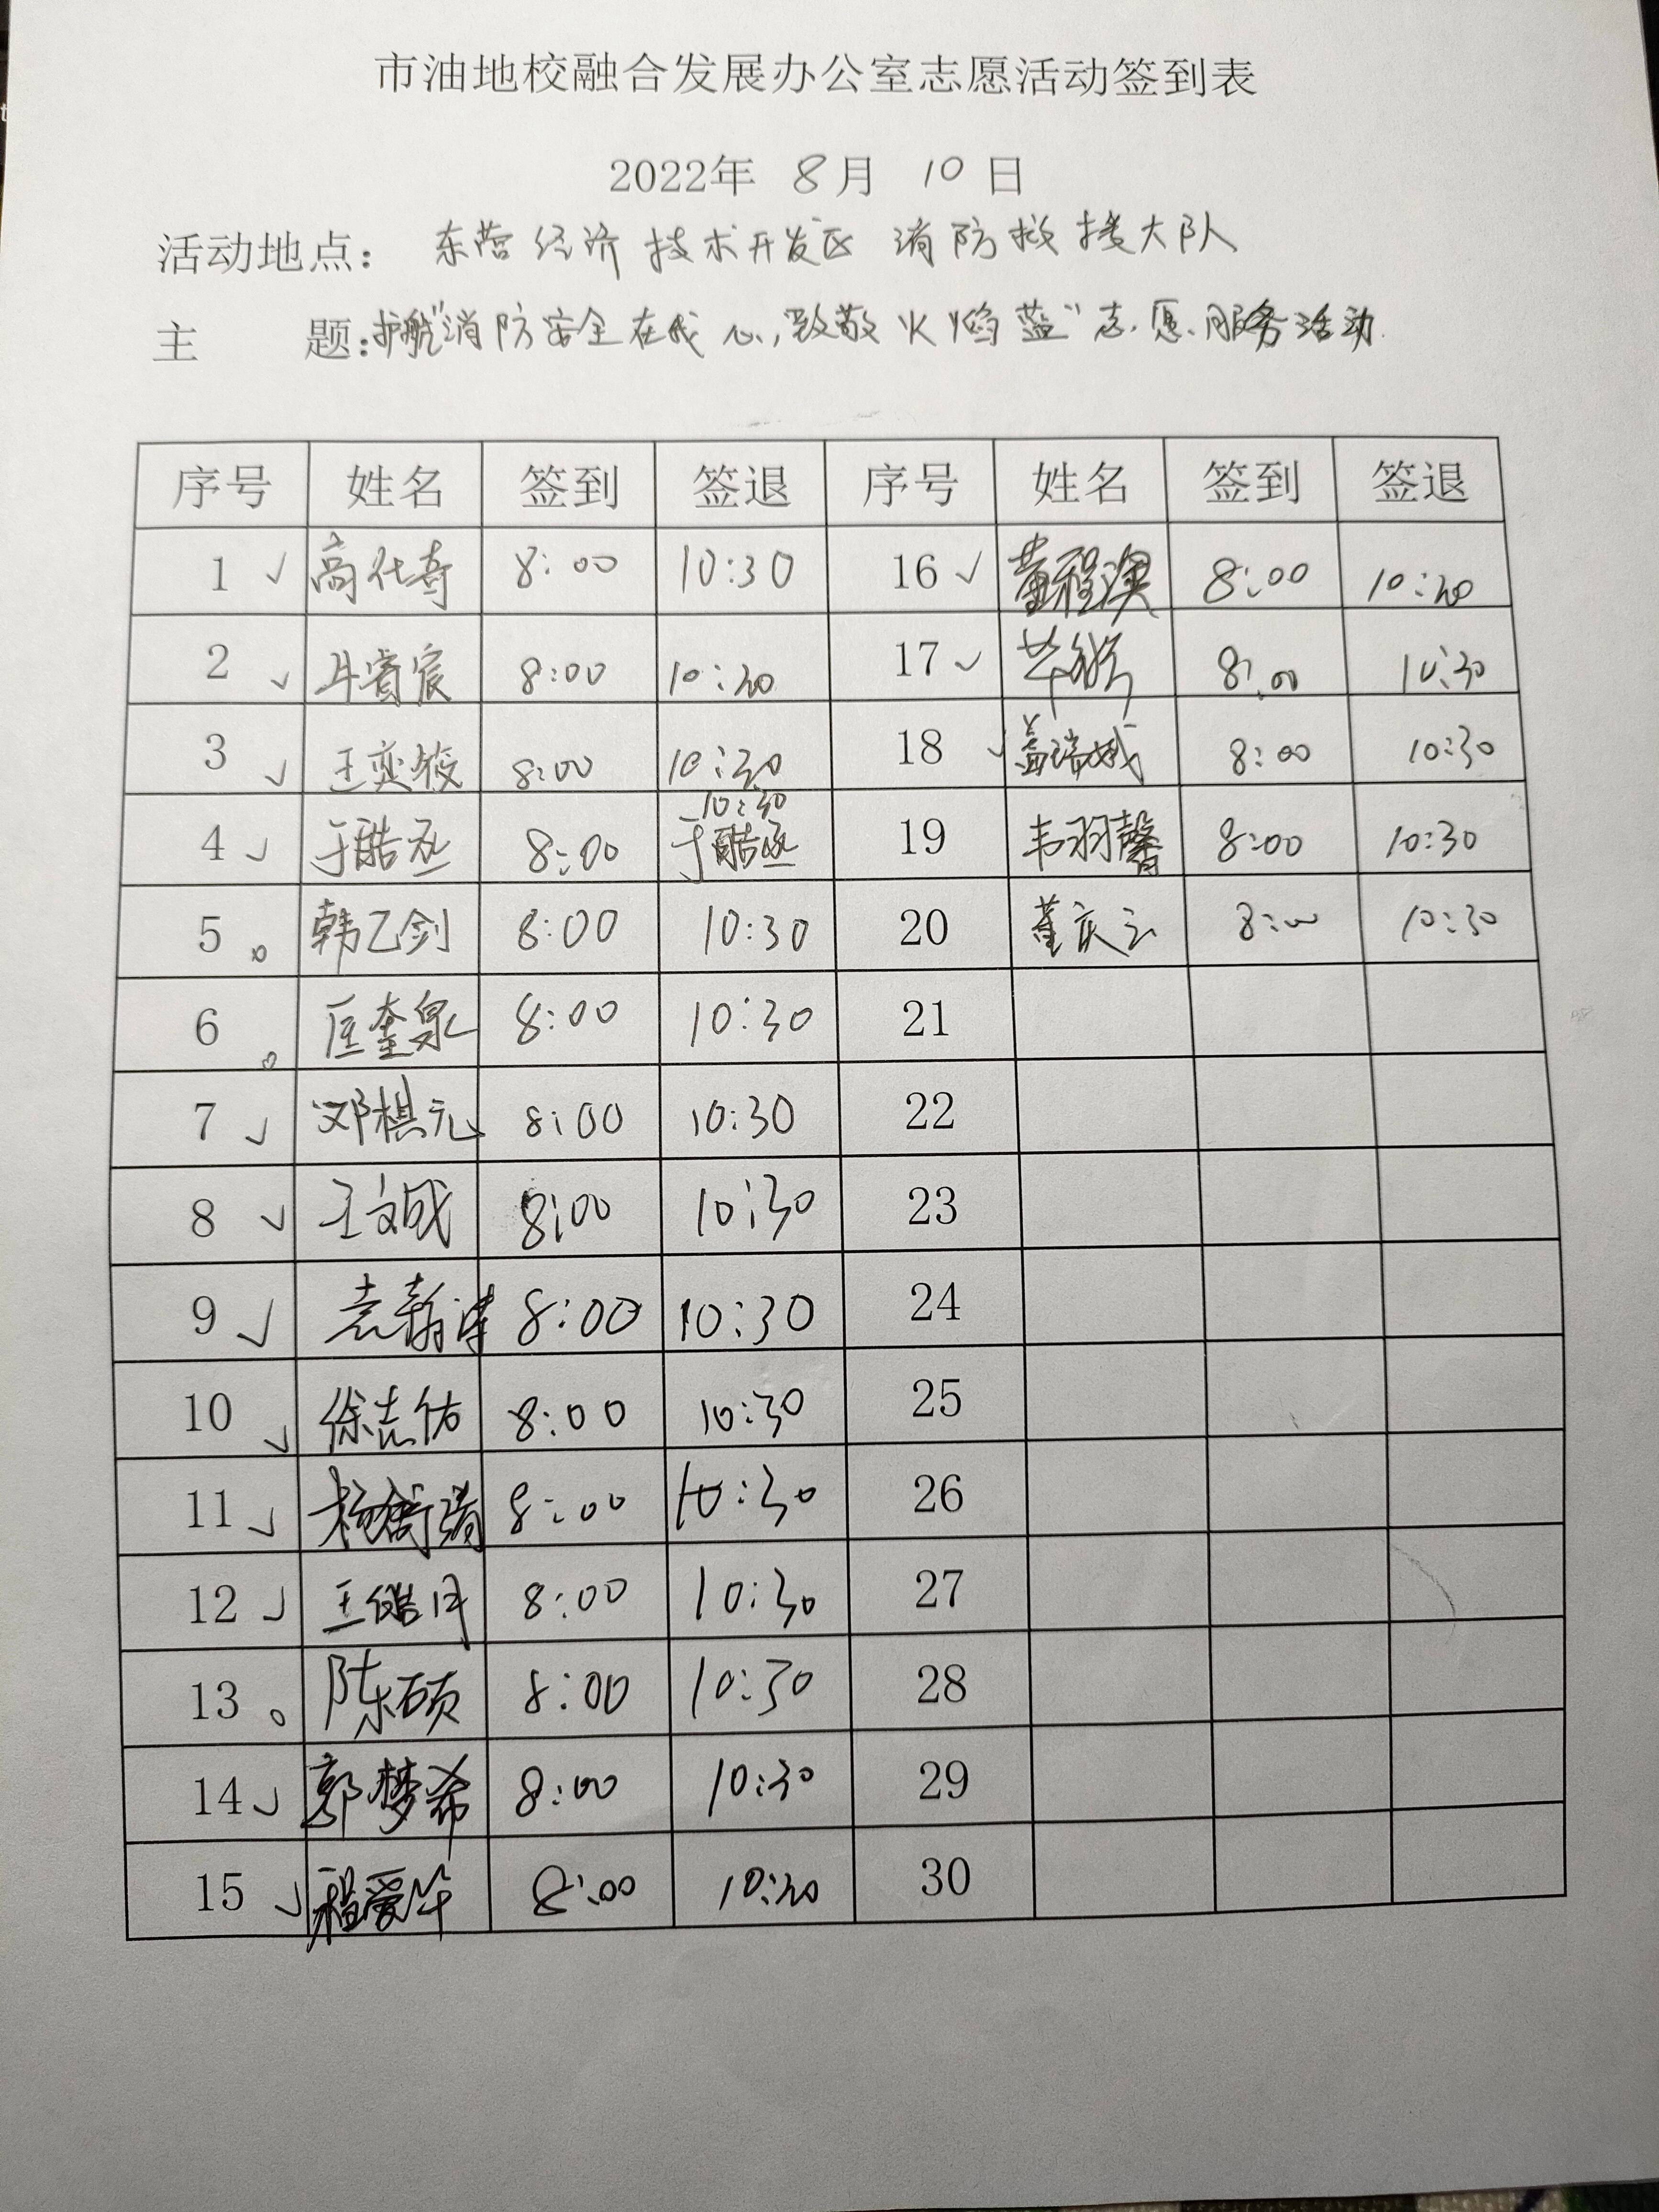 市油地校融合发展办公室志愿活动签到表
2022年 8月 10日
活动地点: 东营经济技术开发区 消防救援大队
主 题:护航"消防安全在我心,致敬火焰蓝"志愿服务活动.
序号 姓名 签到 签退 序号 姓名 签到 签退
1 ✓ 高仕奇 8:00 10:30 16 ✓ 董程澳 8:00 10:30
2 ✓ 8:00 10:30 17 ✓ 8:00 10:30
3 ✓ 王奕皎 8:00 10:30 18 ✓ 盖瑞城 8:00 10:30
10:30
4 ✓ 于皓丞 8:00 于皓丞 19 韦羽馨 8:00 10:30
5 韩乙剑 8:00 10:30 20 董庆云 8:00 10:30
6 匡奎泉 8:00 10:30 21
7 ✓ 邓棋元 8:00 10:30 22
8 ✓ 王文成 8:00 10:30 23
9 ✓ 8:00 10:30 24
10 ✓ 徐志佑 8:00 10:30 25
11 ✓ 8:00 10:30 26
12 ✓ 王皓月 8:00 10:30 27
13 陈硕 8:00 10:30 28
14 ✓ 郭梦希 8:00 10:30 29
15 ✓ 程爱华 8:00 10:30 30